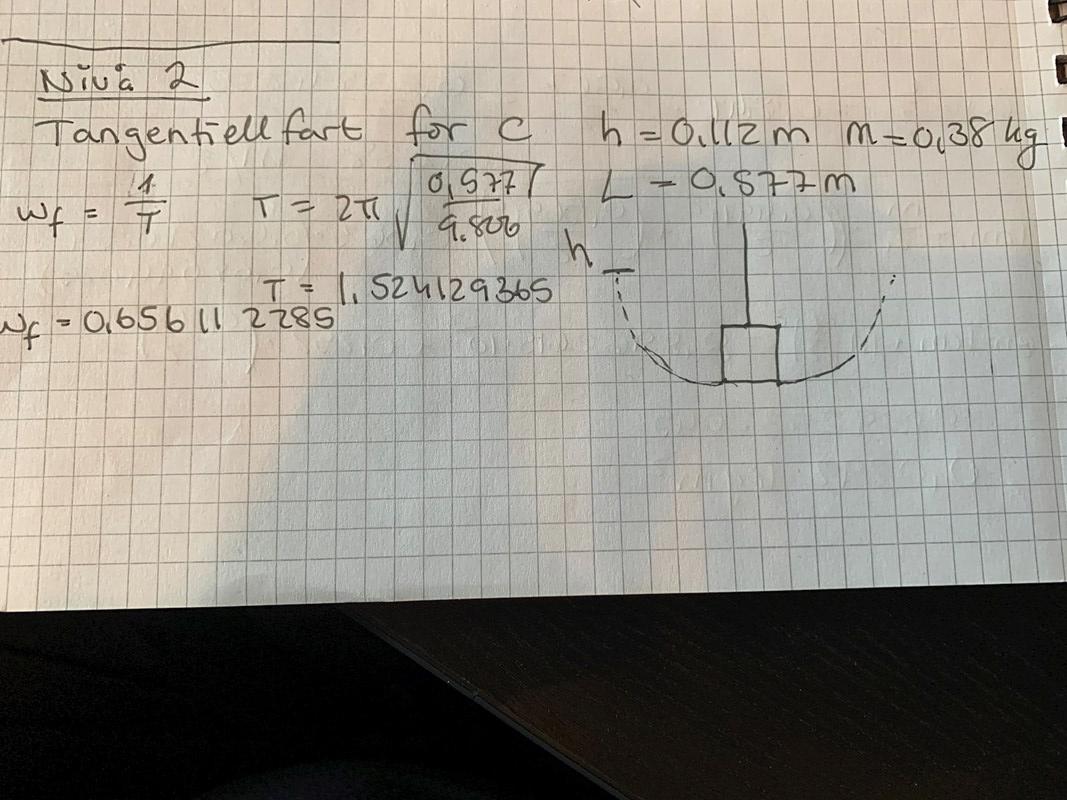 Nivå 2
Tangentiell fart for C h = 0.112 m m = 0,38 kg
w_f = 1/T T = 2π √(0,577/9.806) L = 0.577 m
h
T = 1.524129365
w_f = 0.6561122285